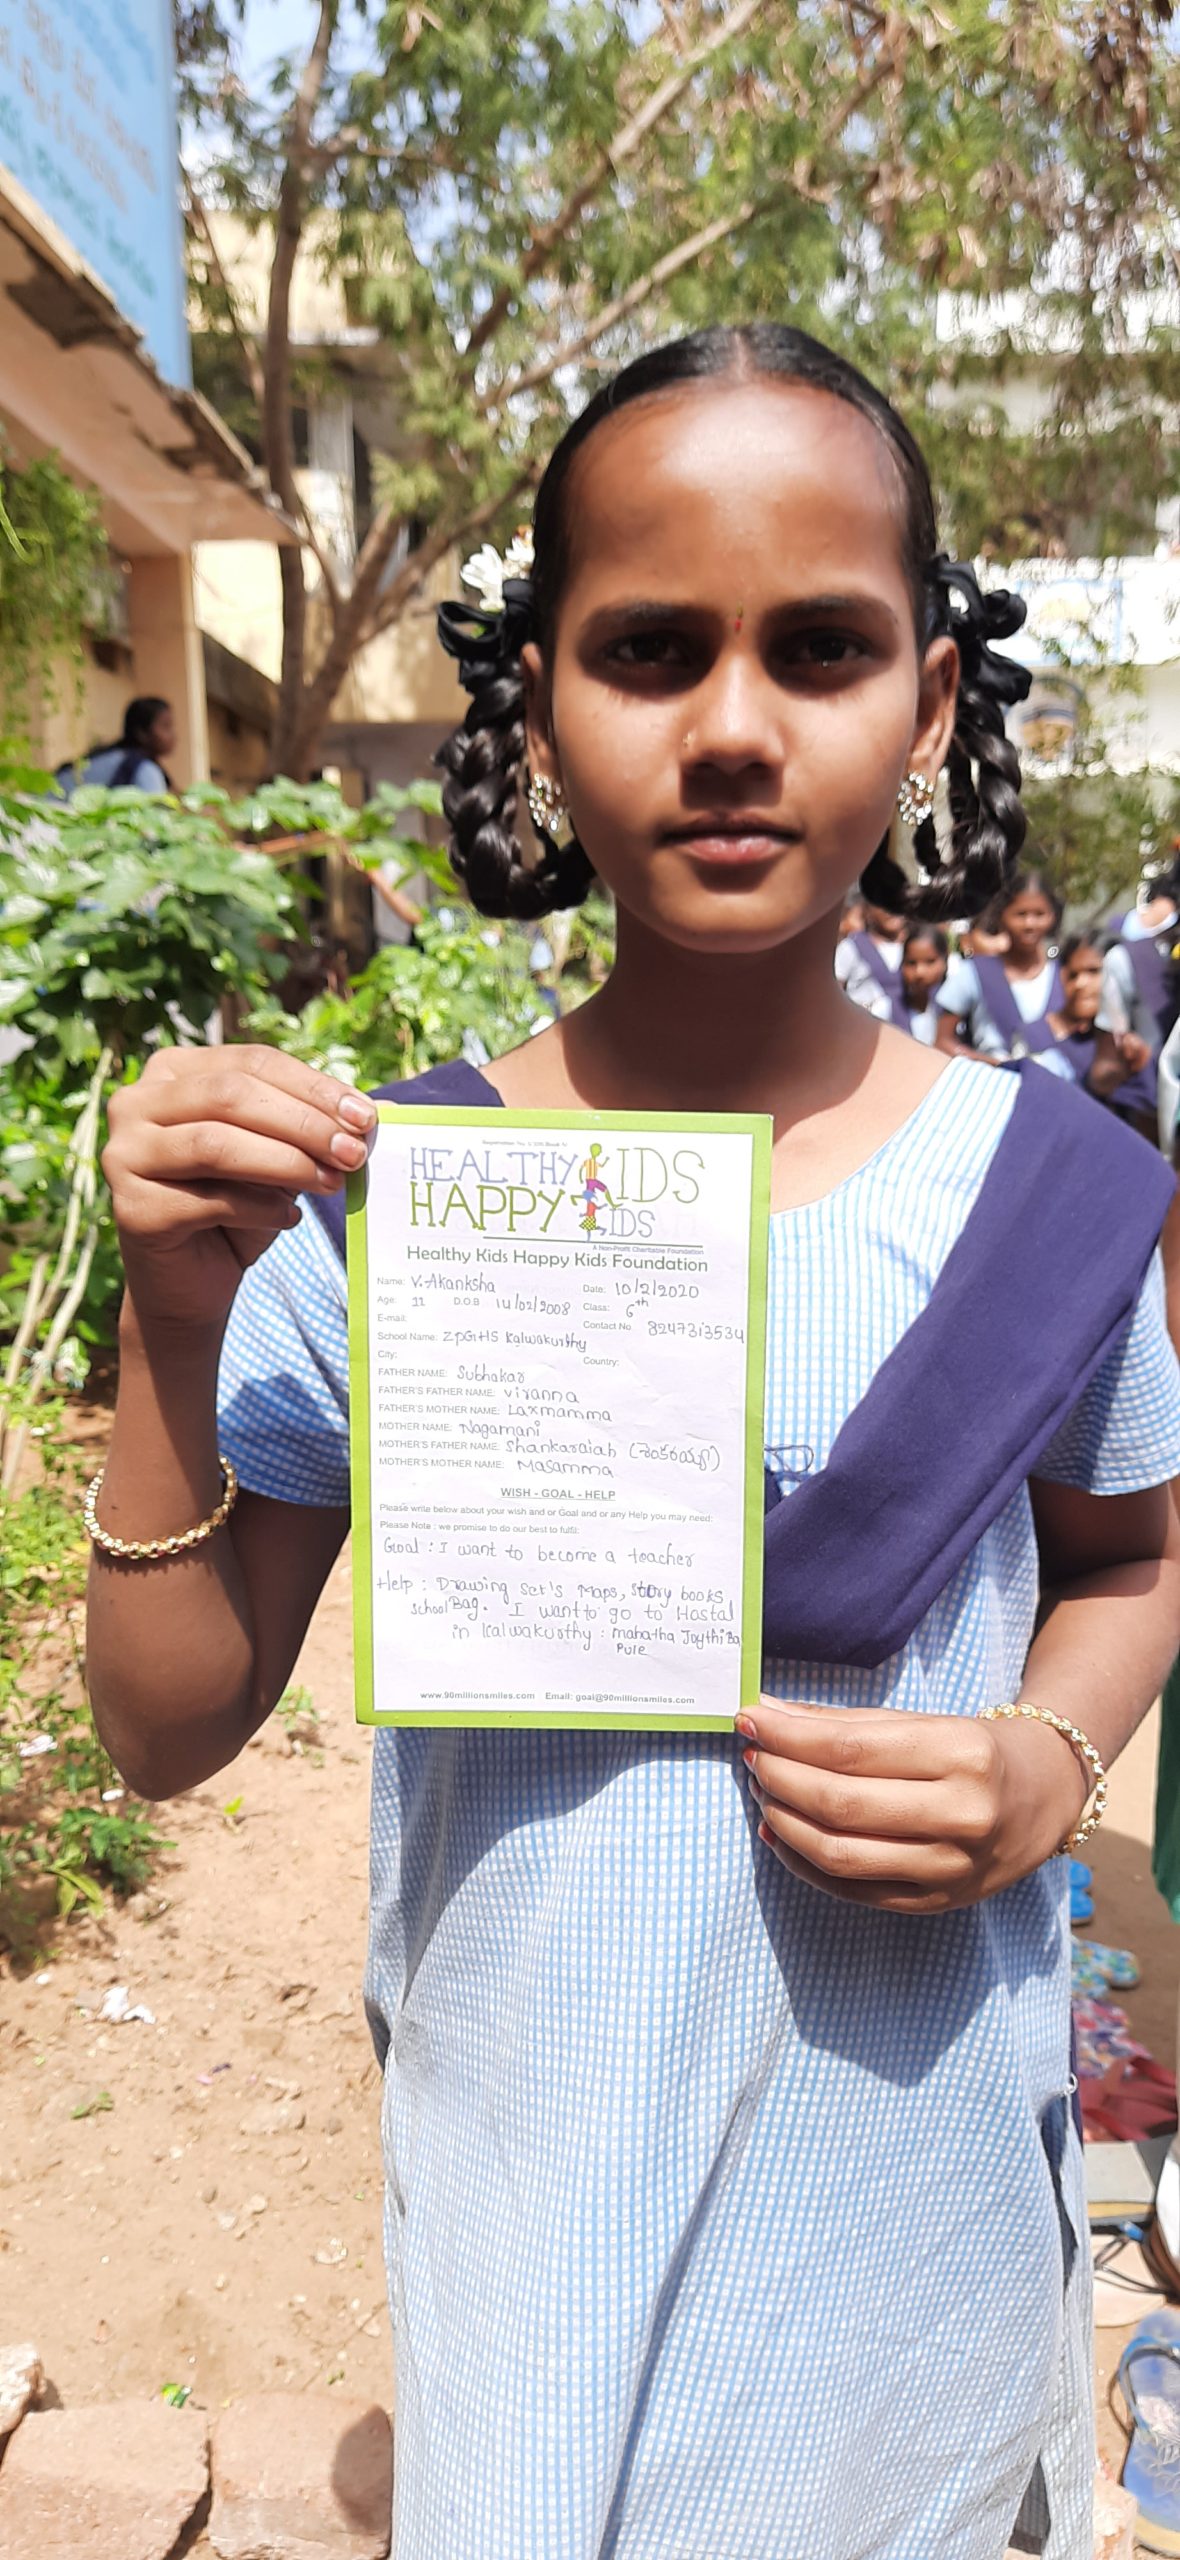 HEALTHY KIDS
HAPPY KIDS
A Non-Profit Charitable Foundation
Healthy Kids Happy Kids Foundation
Name: V. Akanksha Date: 10/2/2020
Age: 11 D.O.B 14/02/2008 Class: 6th
E-mail: Contact No 8247313534
School Name: ZPGHS Kalwakurthy
City: Country:
FATHER NAME: Subhakar
FATHER'S FATHER NAME: Viranna
FATHER'S MOTHER NAME: Laxmamma
MOTHER NAME: Nagamani
MOTHER'S FATHER NAME: Shankaraiah (శంకరయ్య)
MOTHER'S MOTHER NAME: Masamma
WISH - GOAL - HELP
Please write below about your wish and or Goal and or any Help you may need:
Please Note : we promise to do our best to fulfil:
Goal : I want to become a teacher
Help : Drawing set's Maps, story books
school Bag. I want to go to Hostal
in kalwakurthy : mahatha Joythi Ba
Pule
www.90millionsmiles.com Email: goal@90millionsmiles.com